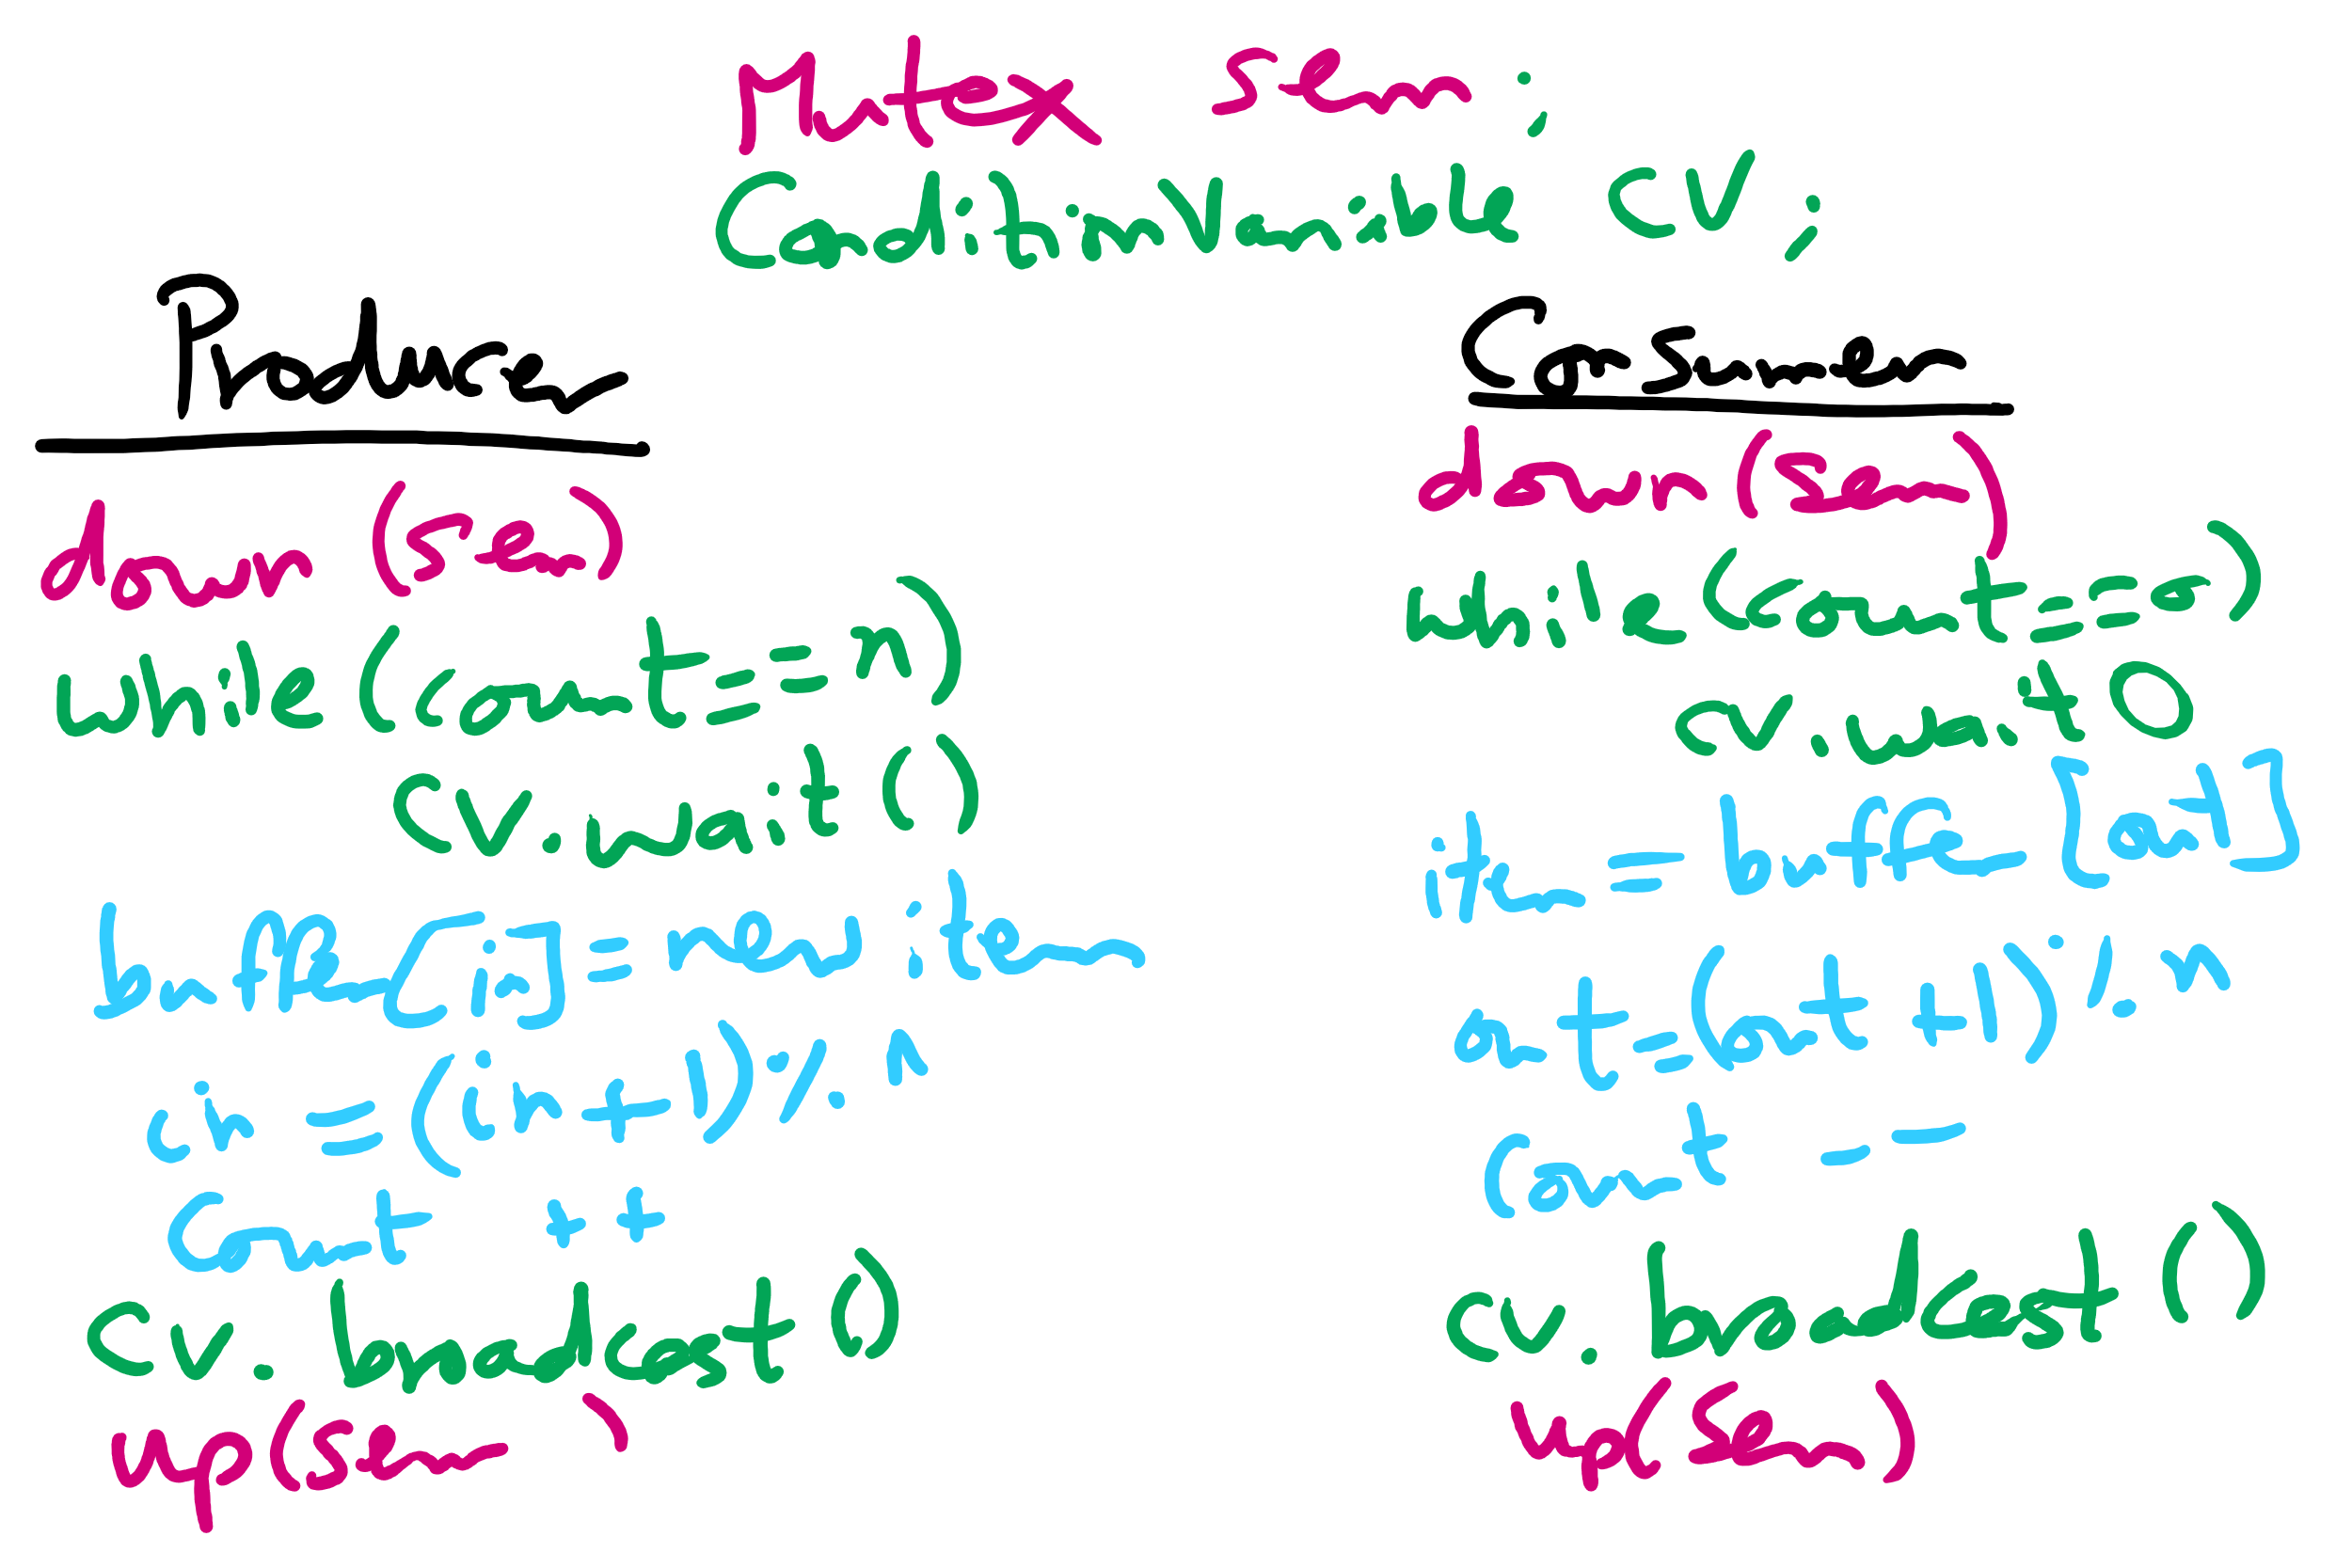 Mutex sem ;
Condition Variable CV ;
Producer
down (sem)
while (count == n)
CV. wait ()
buffer [in] = new item
in = (in+1) % n
Count ++
CV. broadcast ()
up(sem )
Consumer
down (sem)
while (count == 0)
CV. wait ()
item = buffer [out]
out = (out+1) % n
Count --
CV. broadcast ()
up( sem )